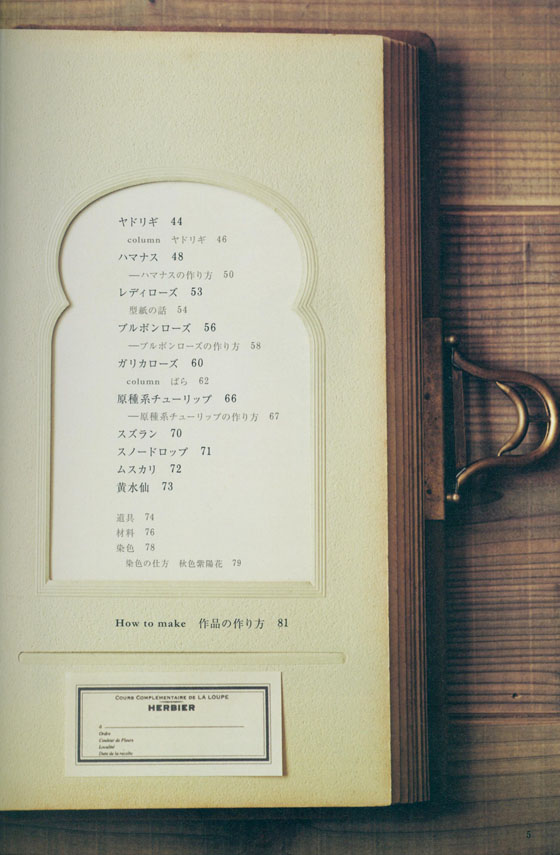 ヤドリギ 44
column ヤドリギ 46
ハマナス 48
—ハマナスの作り方 50
レディローズ 53
型紙の話 54
ブルボンローズ 56
—ブルボンローズの作り方 58
ガリカローズ 60
column ばら 62
原種系チューリップ 66
—原種系チューリップの作り方 67
スズラン 70
スノードロップ 71
ムスカリ 72
黄水仙 73
道具 74
材料 76
染色 78
染色の仕方 秋色紫陽花 79
How to make 作品の作り方 81
COURS COMPLÉMENTAIRE DE LA LOUPE
HERBIER
Ordre
Couleur de Fleurs
Localité
Date de la récolte
5